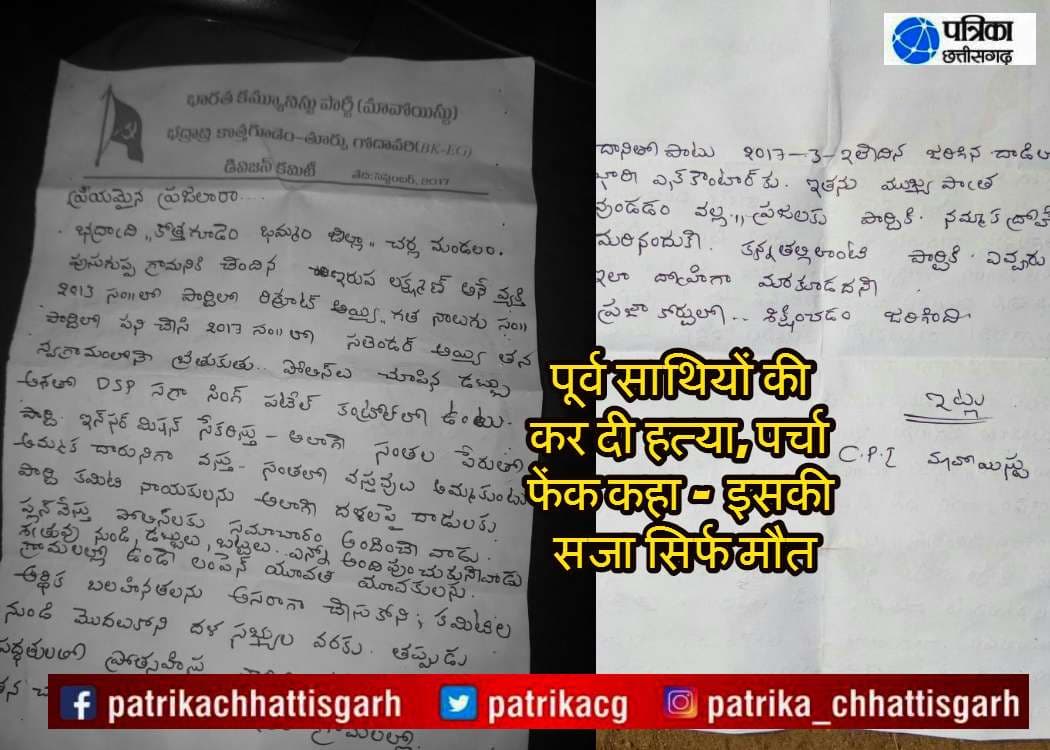 పత్రికా
पत्रिका
छत्तीसगढ़
భారత కమ్యూనిస్టు పార్టీ (మావోయిస్టు)
భద్రాద్రి కొత్తగూడెం-తూర్పు గోదావరి(BK-EG)
డివిజన్ కమిటీ
తేది:సెప్టెంబర్, 2017
ప్రియమైన ప్రజలారా...
భద్రాద్రి,, కొత్తగూడెం ఖమ్మం జిల్లా,, చర్ల మండలం.
పుసుగుప్ప గ్రామనికి చెందిన ఇరుప లక్ష్మణ్ అనే వ్యక్తి
2013 సం॥లో పార్టిలో రిక్రూట్ అయ్యి,, గత నాలుగు సం॥
పార్టిలో పని చేసి 2017 సం॥ లో సరెండర్ అయ్యి తన
స్వగ్రామంలోనే బ్రతుకుతు.. పోలీస్‌లు చూపిన డబ్బు
ఆశతో DSP సగ్రా సింగ్ పటేల్ కంట్రోల్‌లో ఉంటు.
పార్టి. ఇన్ఫర్ మిషన్ సేకరిస్తు - అలాగే సంతల పేరుతో
అమ్మక దారునిగా వస్తు- సంతలో వస్తువులు అమ్ముకుంటు
పార్టి కమిటి నాయకులను అలాగే దళలపై దాడులకు
ప్లన్ వేస్తు పోలీస్‌లకు సమాచారం అందించే వాడు.
శత్రువు నుండి, డబ్బులు, బట్టలు.. ఎన్నో అందిపుంచుకునేవాడు
గ్రామలల్లో ఉండే లంపెన్ యూవత యూవకులను.
ఆర్థిక బలహినతలను ఆసరాగా చేసుకోని; కమిటిల
నుండి మొదలుకోని దళ సభ్యుల వరకు. తప్పుడు
పద్ధతులతో ప్రోత్సహిస్తు
గ్రామలల్లో
దానితో పాటు 2017-3-2తేదిన జరిగిన దాడిలో
భారి ఎన్ కౌంటార్ కు. ఇతను ముఖ్య పాత్ర
వుండడం వల్ల.,, ప్రజలకు పార్టికి. నమ్మక ద్రోహి
మరినందుకే. కన్నతల్లిలాంటి పార్టికి ఎవ్వరు
ఇలా ద్రోహిగా మారకూడదని
ప్రజా కోర్టులో.. శిక్షించడం జరిగింది
ఇట్లు
C.P.I మావోయిస్టు
पूर्व साथियों की
कर दी हत्या, पर्चा
फेंक कहा - इसकी
सजा सिर्फ मौत
patrikachhattisgarh
patrikacg
patrika_chhattisgarh